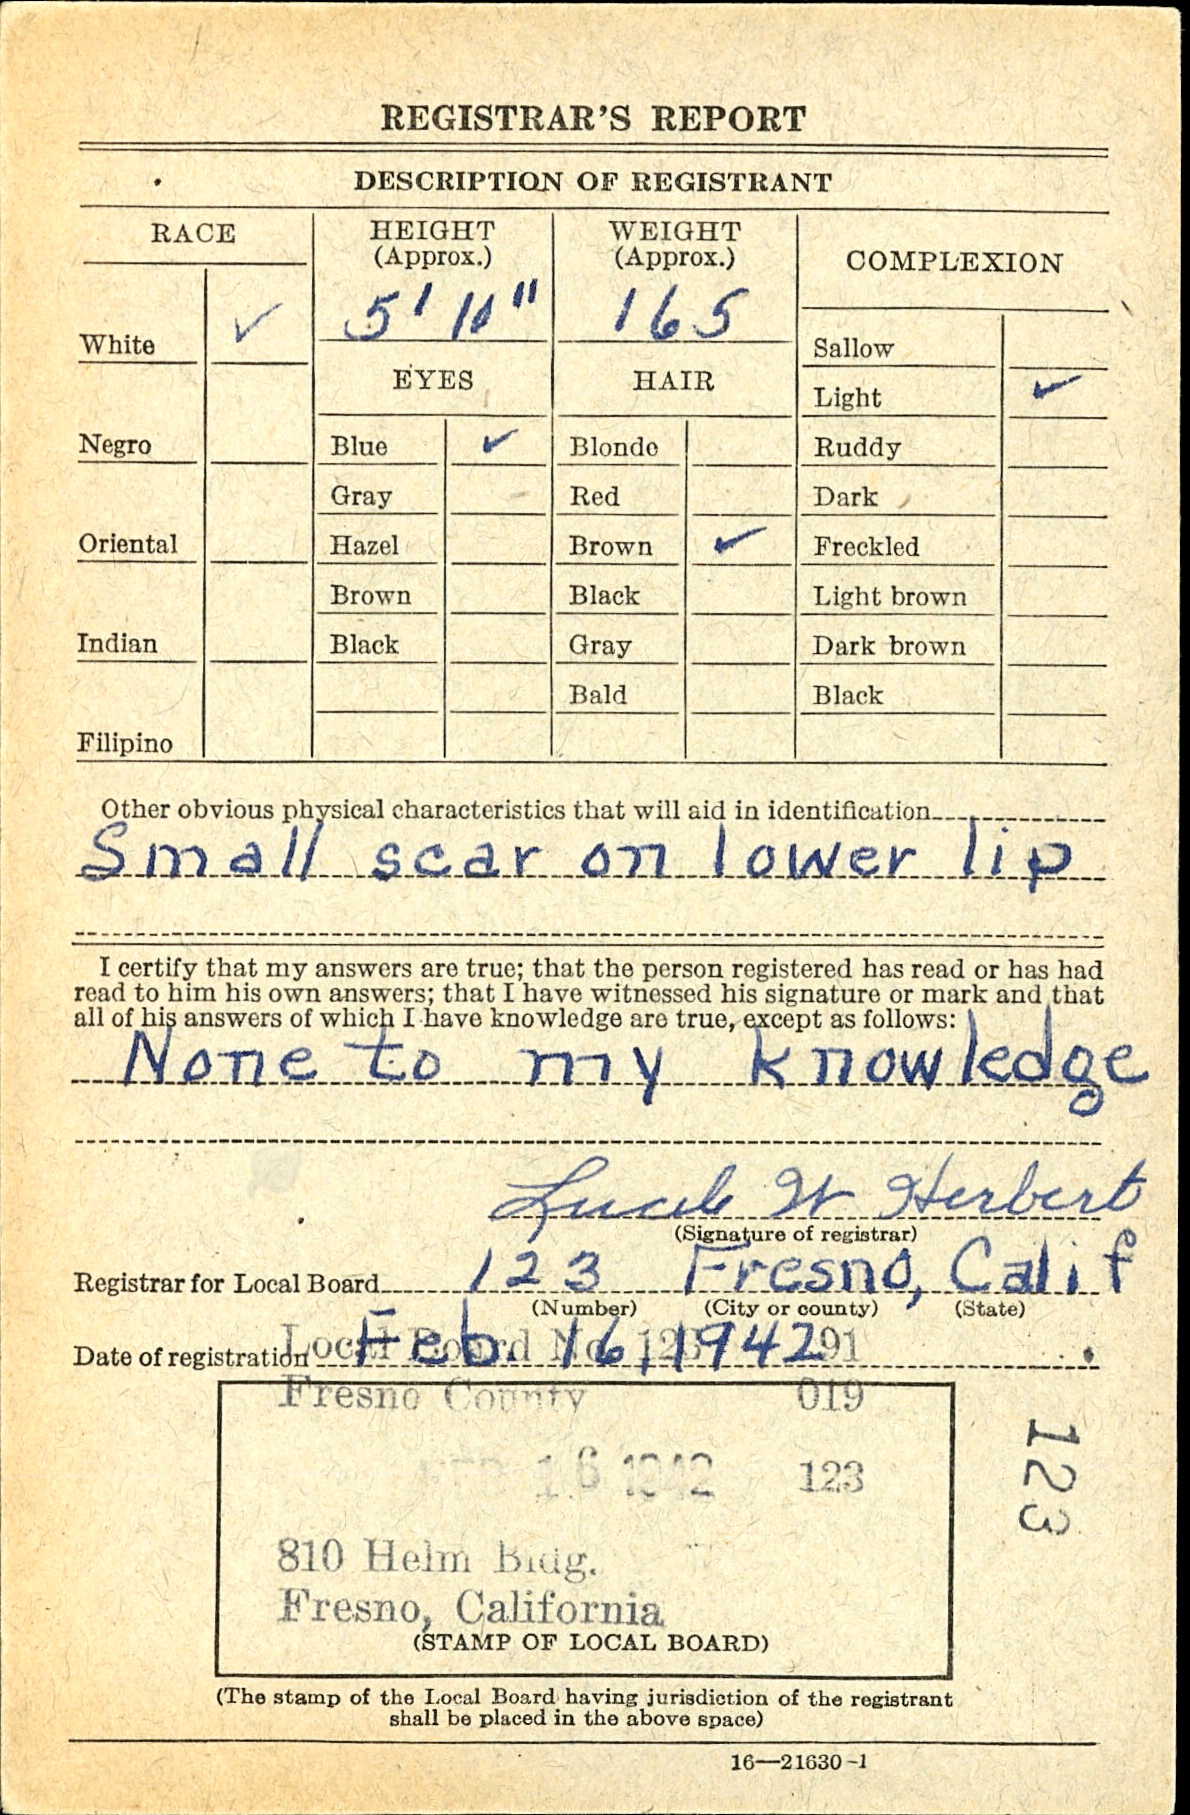 REGISTRAR'S REPORT
DESCRIPTION OF REGISTRANT
RACE
HEIGHT
(Approx.)
WEIGHT
(Approx.)
COMPLEXION
5' 10"
165
White ✓
Sallow
EYES
HAIR
Light ✓
Negro
Blue ✓
Blonde
Ruddy
Gray
Red
Dark
Oriental
Hazel
Brown ✓
Freckled
Brown
Black
Light brown
Indian
Black
Gray
Dark brown
Bald
Black
Filipino
Other obvious physical characteristics that will aid in identification
Small scar on lower lip
I certify that my answers are true; that the person registered has read or has had
read to him his own answers; that I have witnessed his signature or mark and that
all of his answers of which I have knowledge are true, except as follows:
None to my knowledge
Lucile W Herbert
(Signature of registrar)
Registrar for Local Board 123 Fresno, Calif
(Number) (City or county) (State)
Date of registration Feb. 16, 1942
Local Board No. 123 91
Fresno County 019
FEB 16 1942 123
123
810 Helm Bldg.
Fresno, California
(STAMP OF LOCAL BOARD)
(The stamp of the Local Board having jurisdiction of the registrant
shall be placed in the above space)
16—21630-1